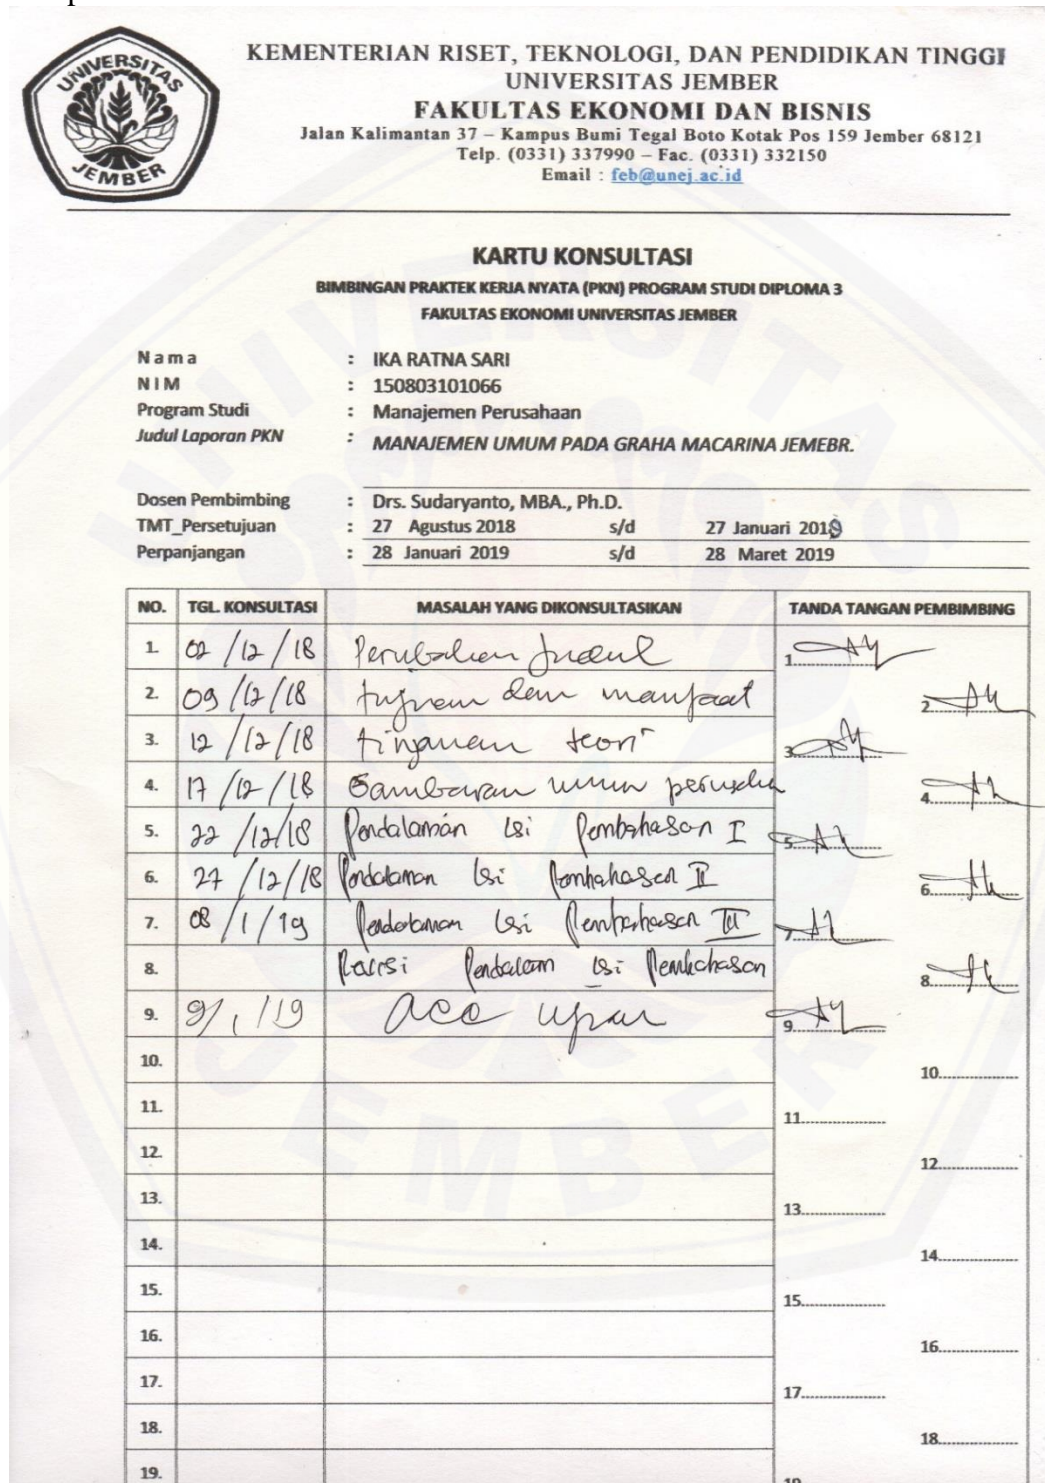 UNIVERSITAS
JEMBER
KEMENTERIAN RISET, TEKNOLOGI, DAN PENDIDIKAN TINGGI
UNIVERSITAS JEMBER
FAKULTAS EKONOMI DAN BISNIS
Jalan Kalimantan 37 – Kampus Bumi Tegal Boto Kotak Pos 159 Jember 68121
Telp. (0331) 337990 – Fac. (0331) 332150
Email : feb@unej.ac.id
KARTU KONSULTASI
BIMBINGAN PRAKTEK KERJA NYATA (PKN) PROGRAM STUDI DIPLOMA 3
FAKULTAS EKONOMI UNIVERSITAS JEMBER
Nama : IKA RATNA SARI
NIM : 150803101066
Program Studi : Manajemen Perusahaan
Judul Laporan PKN : MANAJEMEN UMUM PADA GRAHA MACARINA JEMEBR.
Dosen Pembimbing : Drs. Sudaryanto, MBA., Ph.D.
TMT_Persetujuan : 27 Agustus 2018 s/d 27 Januari 2019
Perpanjangan : 28 Januari 2019 s/d 28 Maret 2019
NO. TGL. KONSULTASI MASALAH YANG DIKONSULTASIKAN TANDA TANGAN PEMBIMBING
1. 02/12/18 Perubahan Judul 1
2. 09/12/18 tujuan dan manfaat 2
3. 12/12/18 tinjauan teori 3
4. 17/12/18 Gambaran umum 4
5. 22/12/18 Pendalaman Isi Pembahasan I 5
6. 27/12/18 Pendalaman Isi Pembahasan II 6
7. 08/1/19 Pendalaman Isi Pembahasan III 7
8. Pendalam Isi Pembahasan 8
9. 9/1/19 acc 9
10. 10
11. 11
12. 12
13. 13
14. 14
15. 15
16. 16
17. 17
18. 18
19. 19